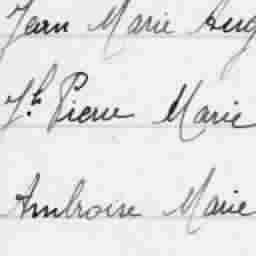 Jean Marie Aug
Jh Pierre Marie
Ambroise Marie